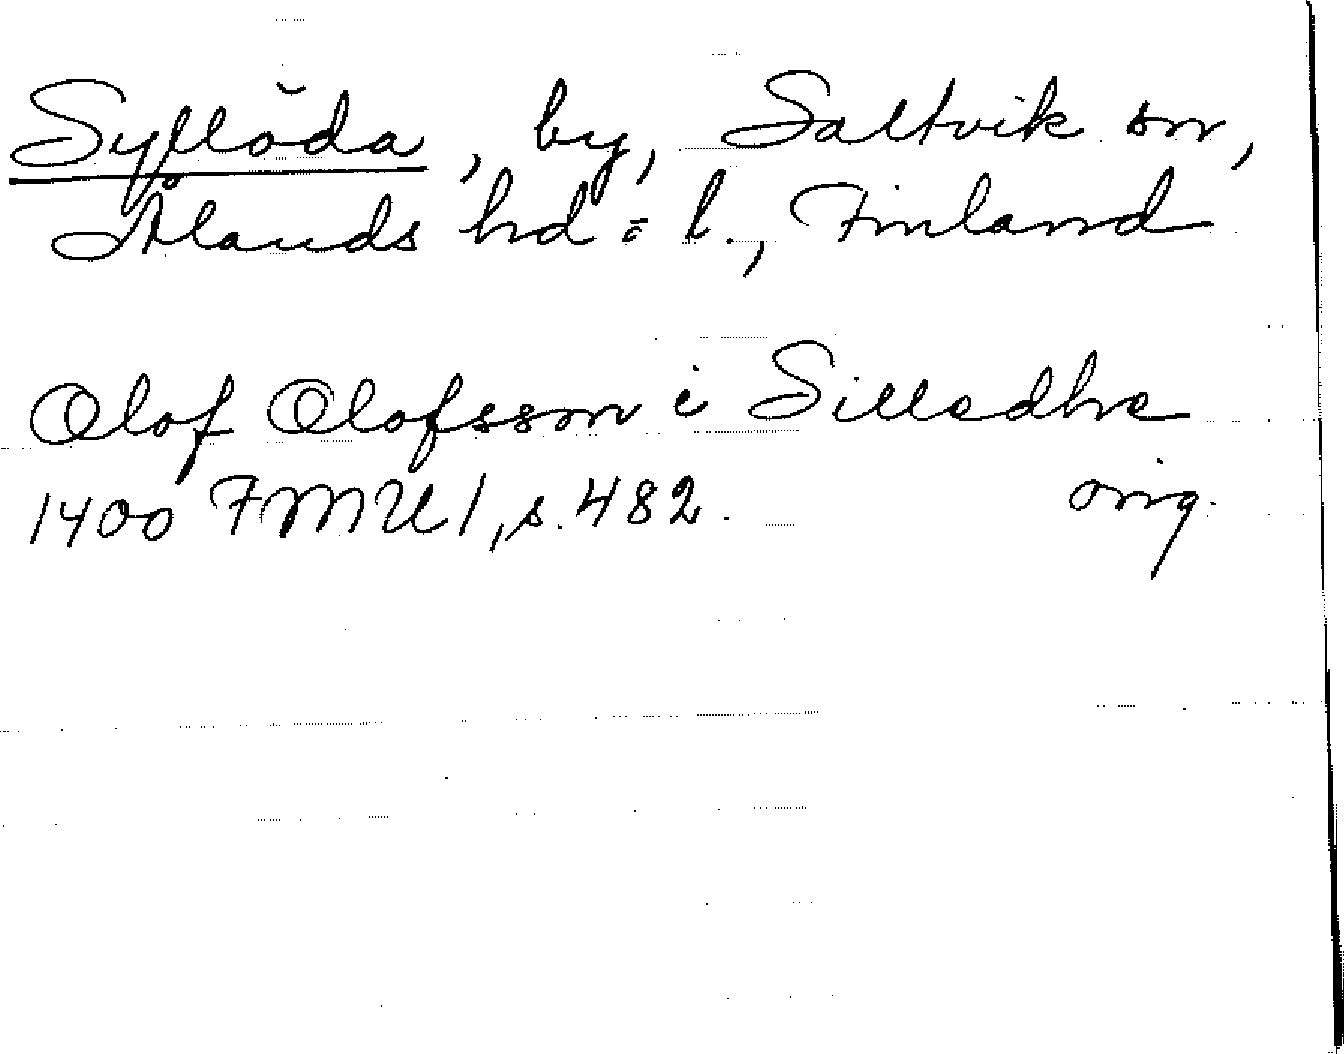 Syllöda, by, Saltvik sn,
Ålands hd = l., Finland
Olof Olofsson i Silledhe
1400 FMU 1, s. 482. orig.